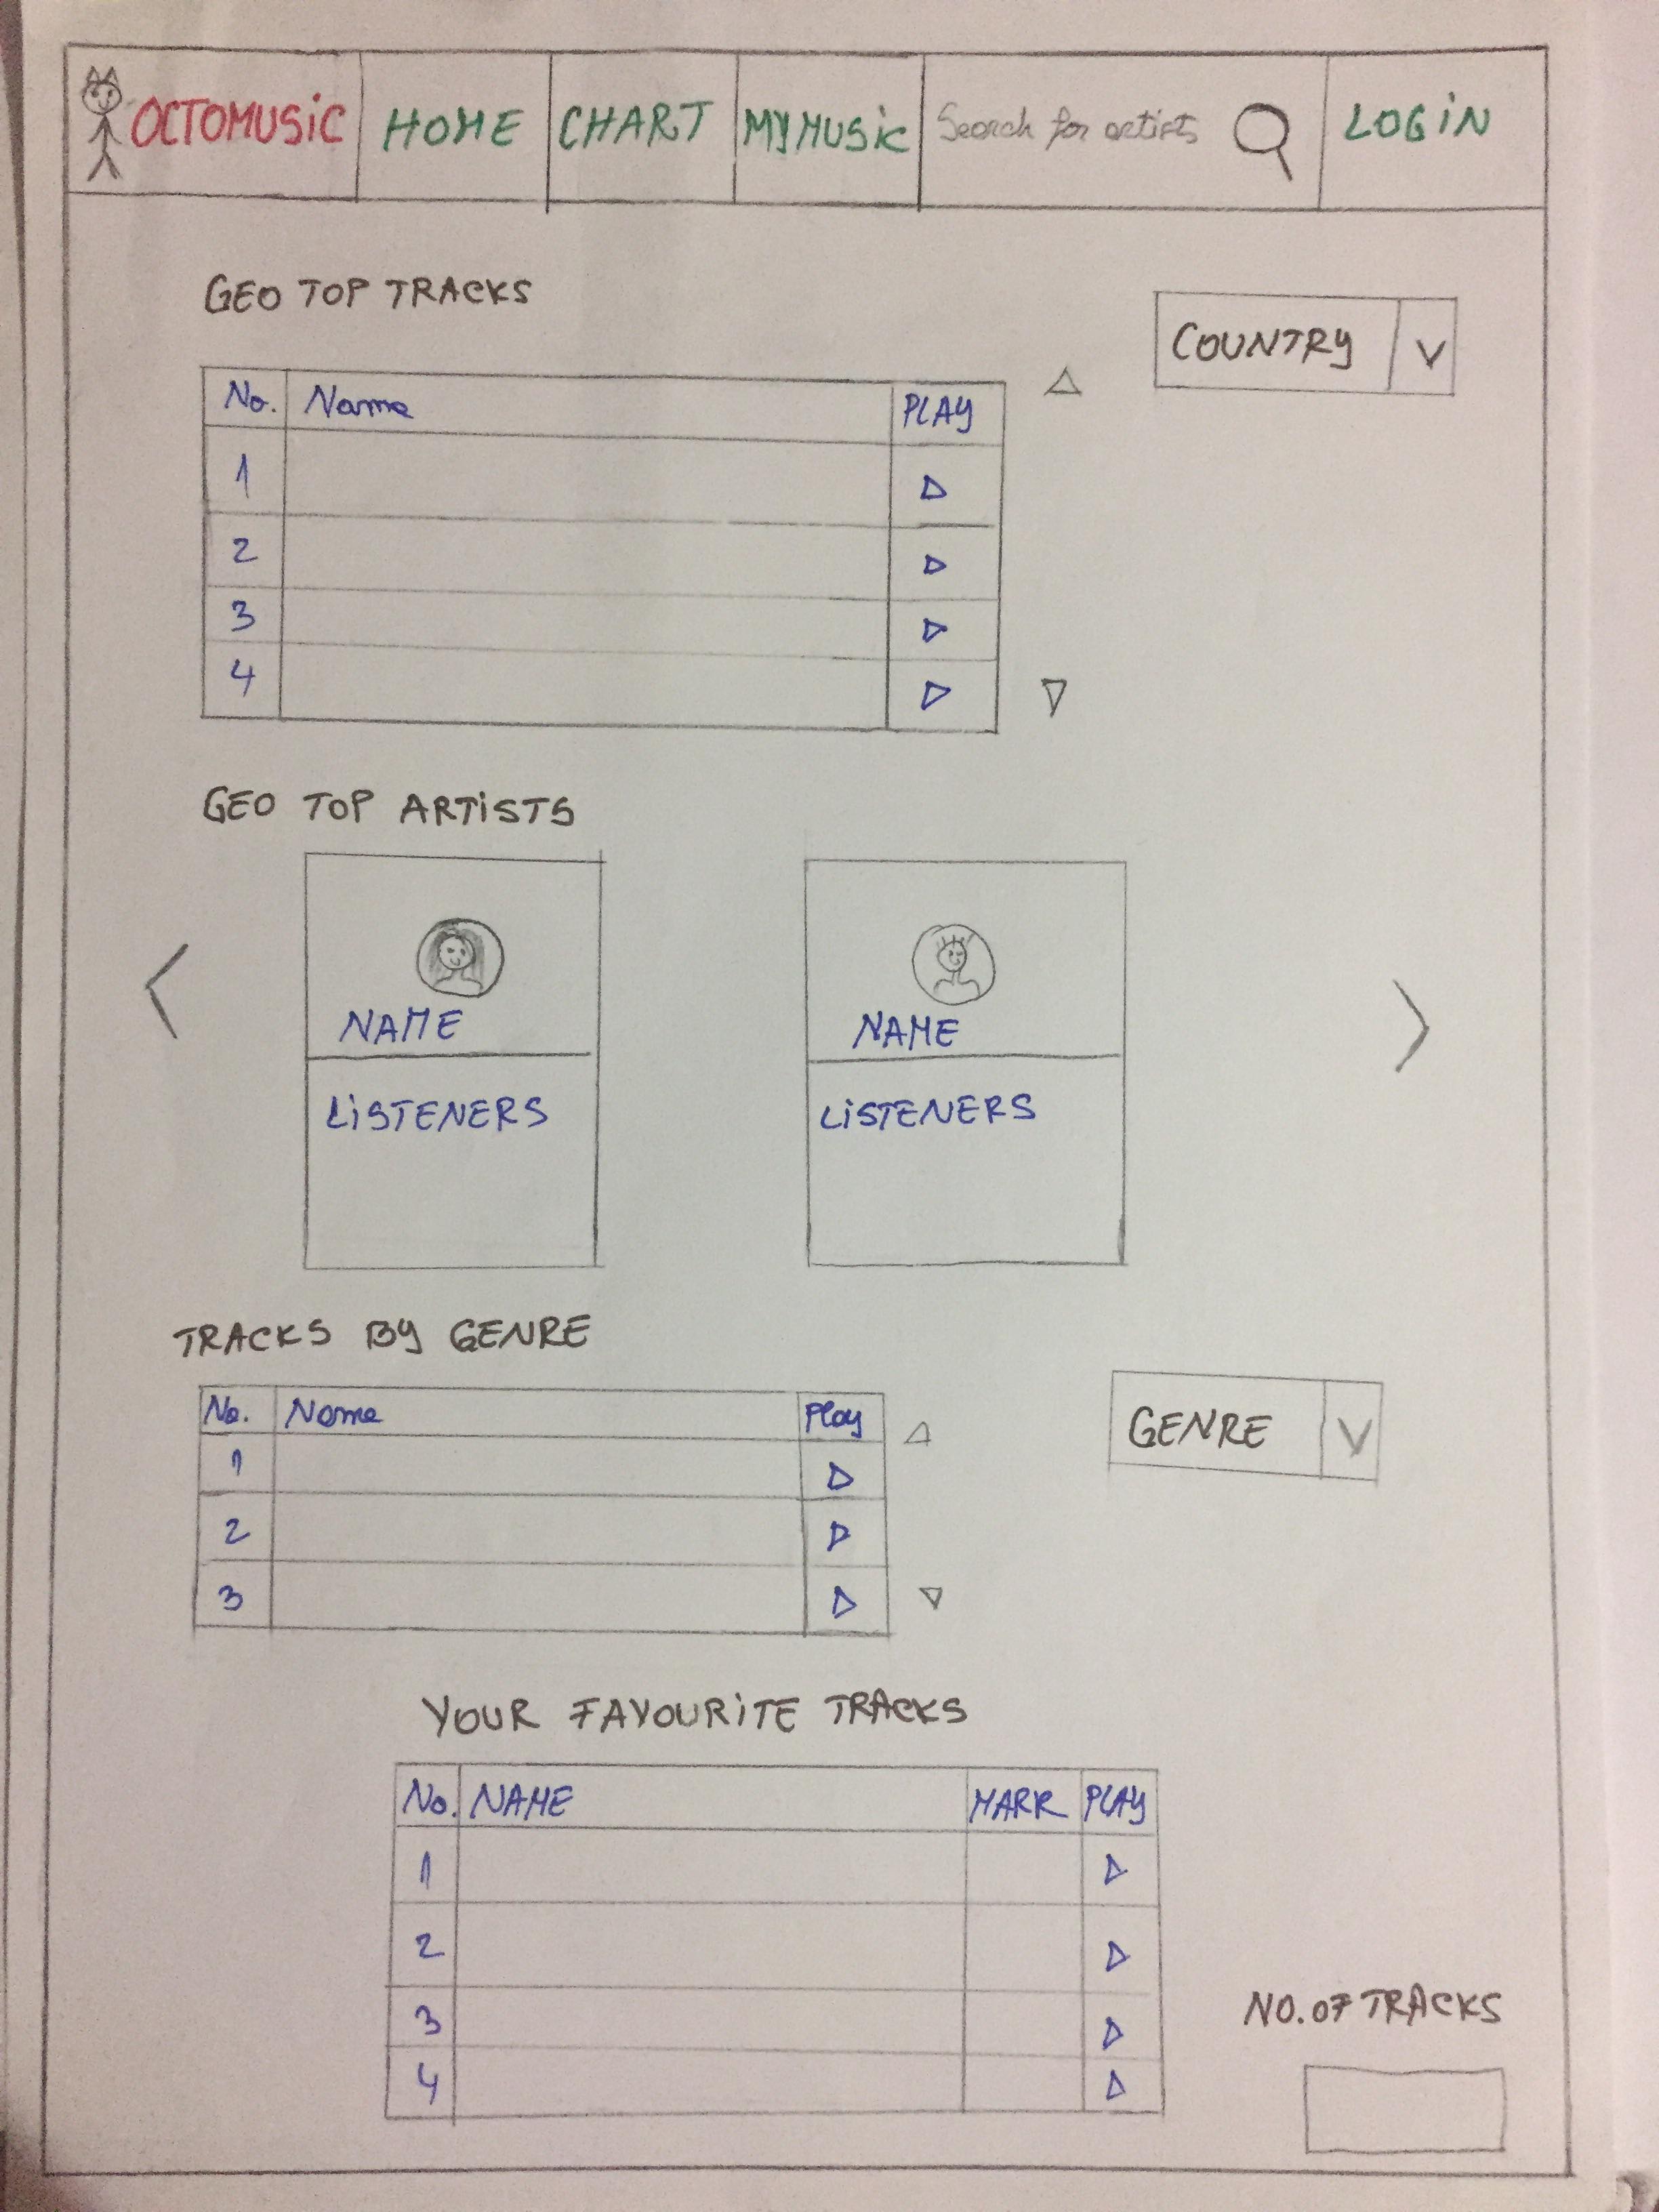 OCTOMUSiC HOME CHART MYMUSiC Search for artists LOGiN
GEO TOP TRACKS
COUNTRY V
No. Name PLAY
1
2
3
4
GEO TOP ARTiSTS
NAME NAME
LiSTENERS LiSTENERS
TRACKS BY GENRE
GENRE V
No. Name Play
1
2
3
YOUR FAVOURiTE TRACKS
No. NAME MARK PLAY
1
2
3
4
NO. OF TRACKS